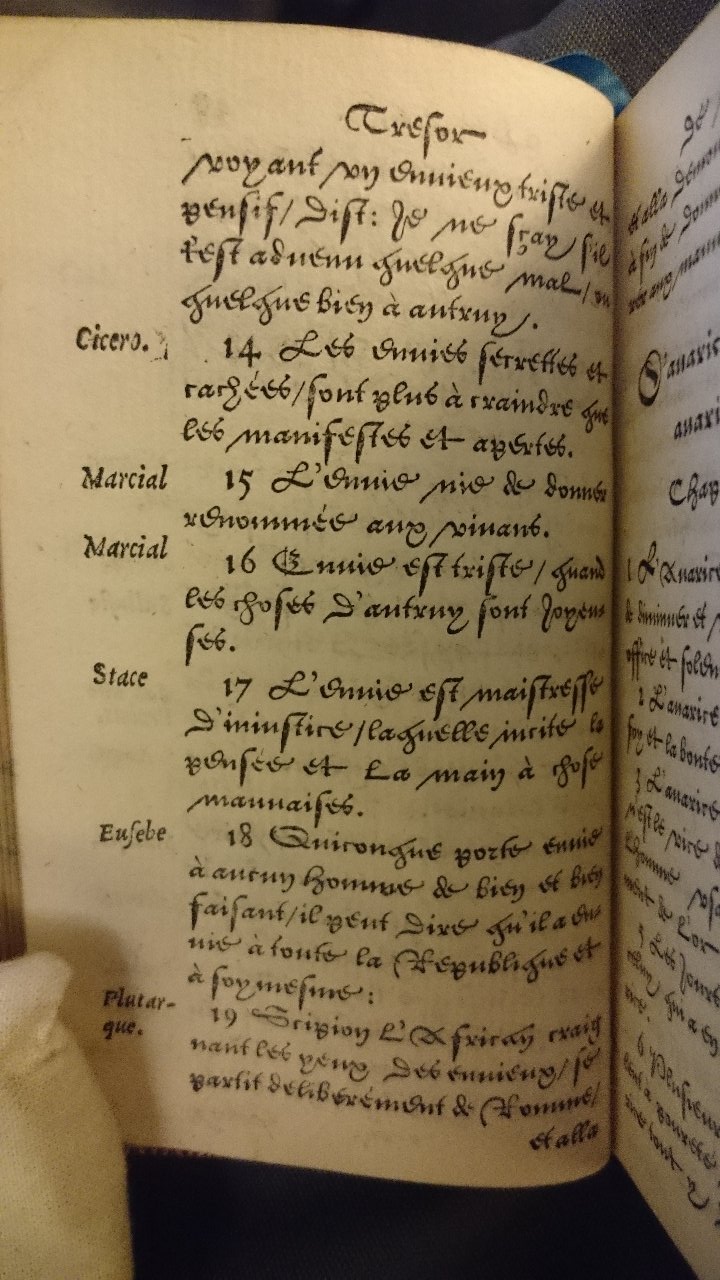 Tresor
voyant vn enuieux triste et
pensif/ dist: Je ne sçay s'il
t'est aduenu quelque mal/ ou
quelque bien à autruy.
Cicero.
14 Les enuies secrettes et
cachées/ sont plus à craindre que
les manifestes et apertes.
Marcial
15 L'enuie nie de donner
renommée aux viuans.
Marcial
16 Enuie est triste/ quand
les choses d'autruy sont joyeu
ses.
Stace
17 L'enuie est maistresse
d'iniustice/ laquelle incite la
pensée et la main à chose
mauuaises.
Eusebe
18 Quiconque porte enuie
à aucun homme de bien et bien
faisant/ il peut dire qu'il a en-
uie à toute la Republique et
à soy mesme:
Plutar-
que.
19 Scipion l'Africain craig
nant les yeux des enuieux/ se
partit deliberément de Romme/
et alla
et alla
à fin de
Chap
1 L'Auarice
de diminuer et
office et
2 L'auarice
foy et la bonte
3 L'auarice
vice
l'homme
ment de l'or
5 Les jours
qui a en
6 Plusieurs